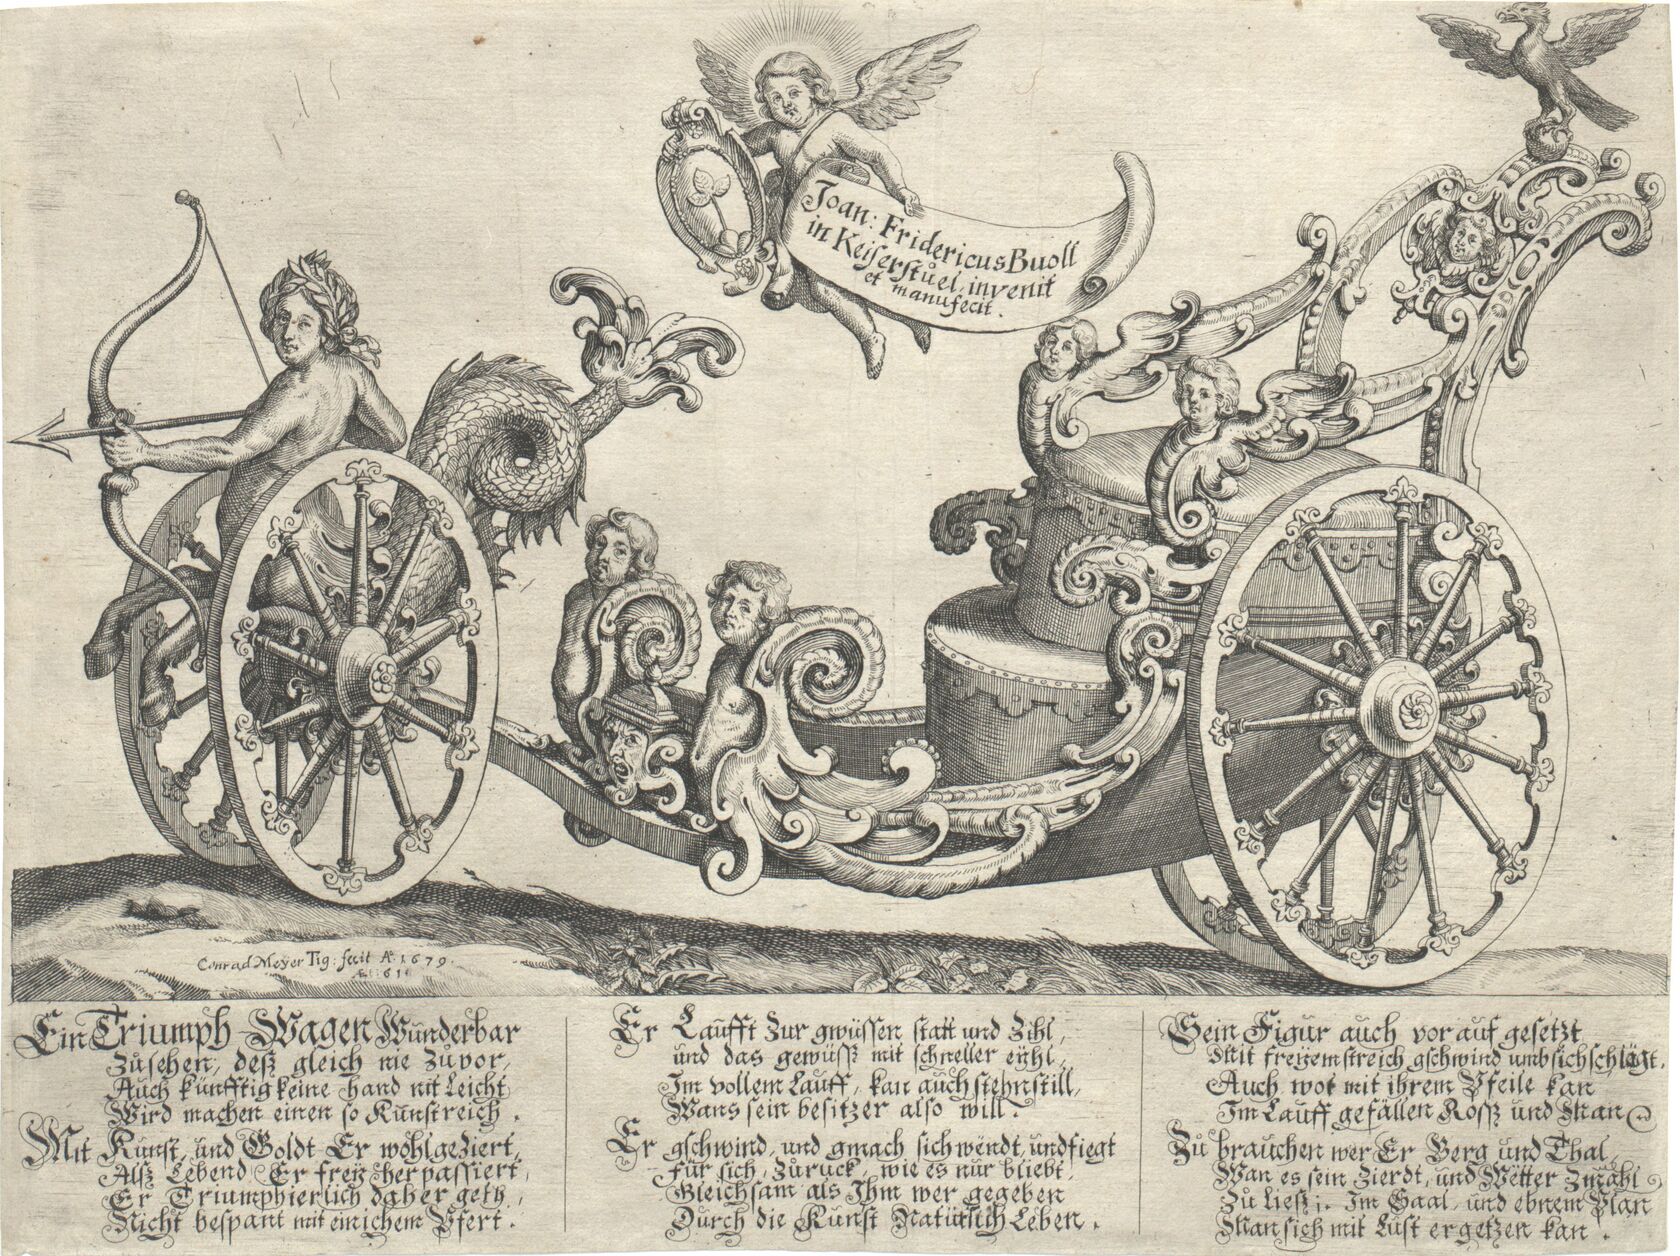 Joan: Fridericus Buoll
in Keiserstůel, invenit
et manufecit.
Conrad Meÿer Tig: fecit Aº. 1679.
Æt: 61
Ein Triumph Wagen Wunderbar
Zusehen, desz gleich nie Zuvor,
Auch künfftig keine hand nit Leicht
Wird machen einen so Kunstreich.
Mit Kunst, und Goldt Er wohlgeziert,
Alsz Lebend Er freÿ her passiert,
Er Triumphierlich daher geth,
Nicht bespant mit einichem Pfert.
Er Laufft Zur gwüssen statt und Zihl,
und das gewüsz mit schneller eÿhl,
Im vollem Lauff, kan auch stehn still,
Wans sein besitzer also will.
Er gschwind, und gmach sich wendt, und fiegt
Für sich, Zuruck, wie es nur bliebt,
Gleichsam als Ihm wer gegeben
Durch die Kunst Natürlich Leben.
Sein Figur auch vor auf gesetzt
Mit freÿem streich gschwind umb sich schlägt,
Auch wol mit ihrem Pfeile kan
Im Lauff gefällen Rosz und Man
Zu brauchen wer Er Berg und Thal,
Wan es sein Zierdt, und Wetter Zmahl
Zu liesz; Im Saal, und ebnem Plan
Man sich mit Lust ergetzen kan.